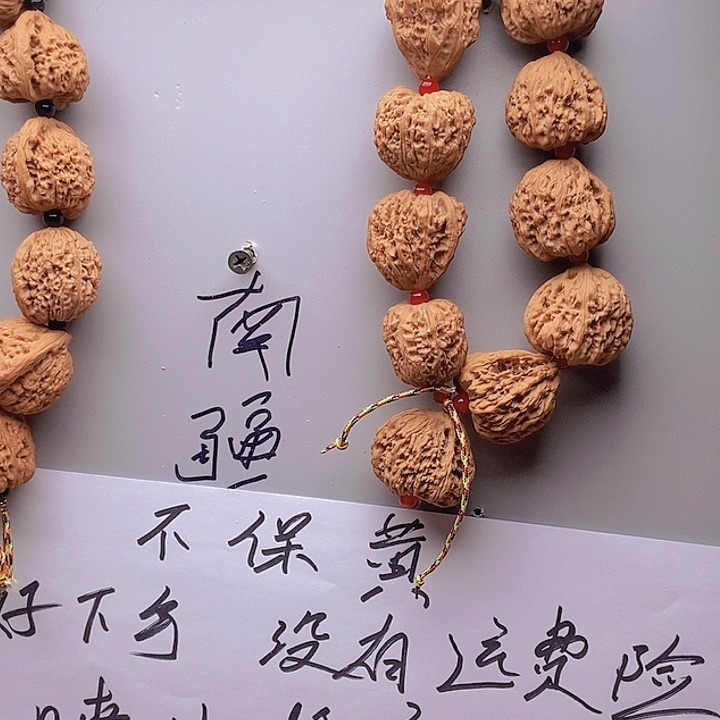 南
疆
不保黄
好下手 没有运费险